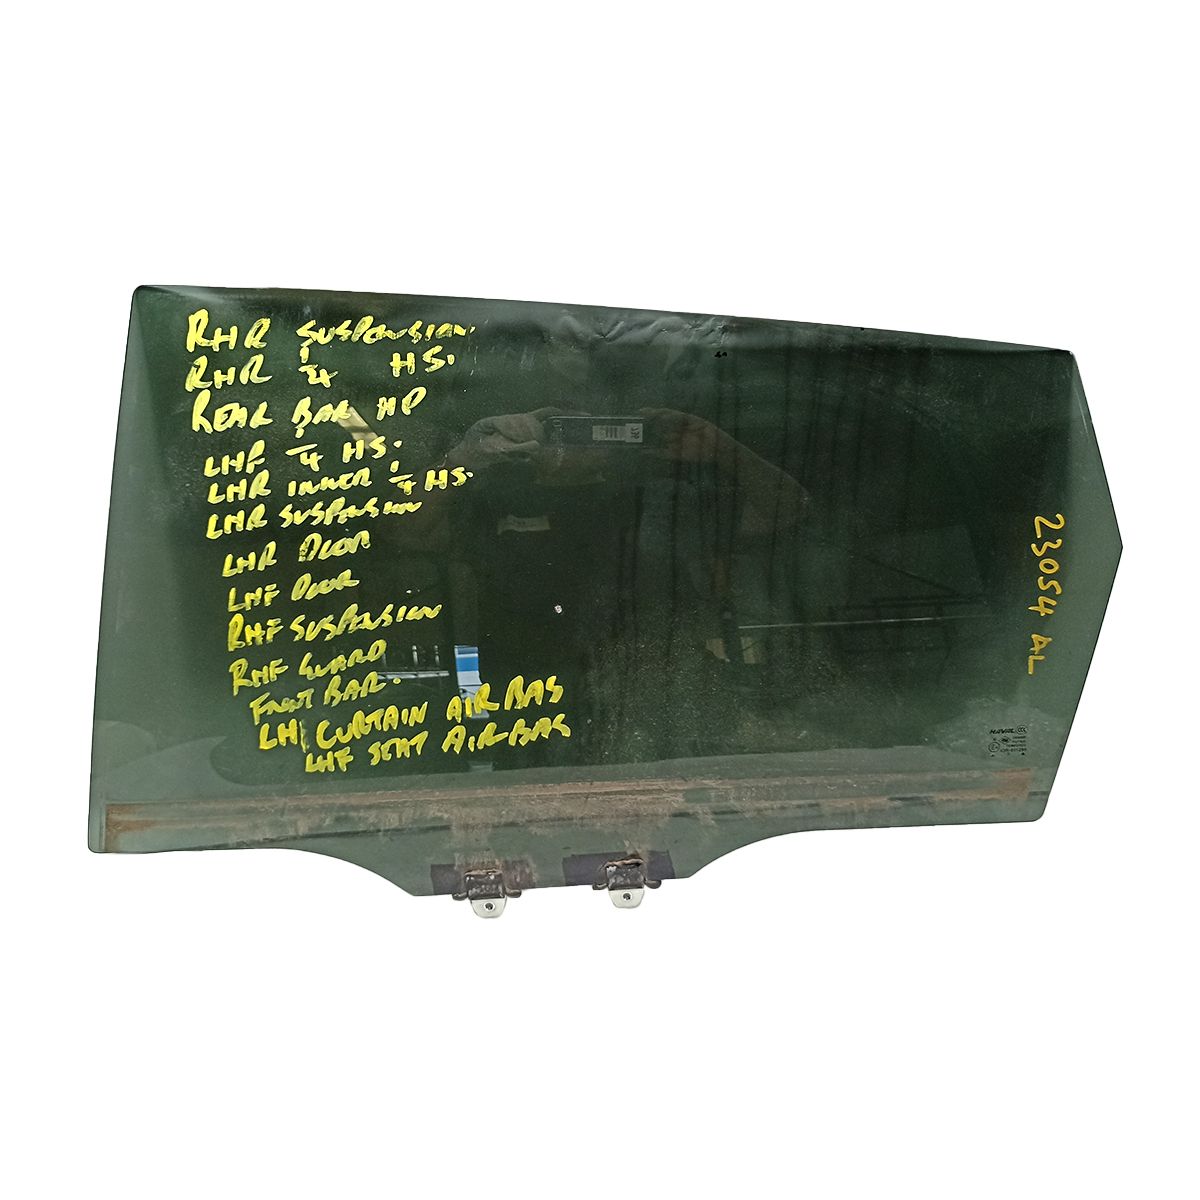 RHR SUSPENSION.
RHR 1/4 HS.
REAR BAR HD
LHF 1/4 HS.
LHR INNER 1/4 HS.
LHR SUSPENSION
LHR DOOR
LHF DOOR
RHF SUSPENSION
RHF GUARD
FRONT BAR.
LH CURTAIN AIRBAG
LHF SEAT AIRBAG
23054 AL
HAVAL